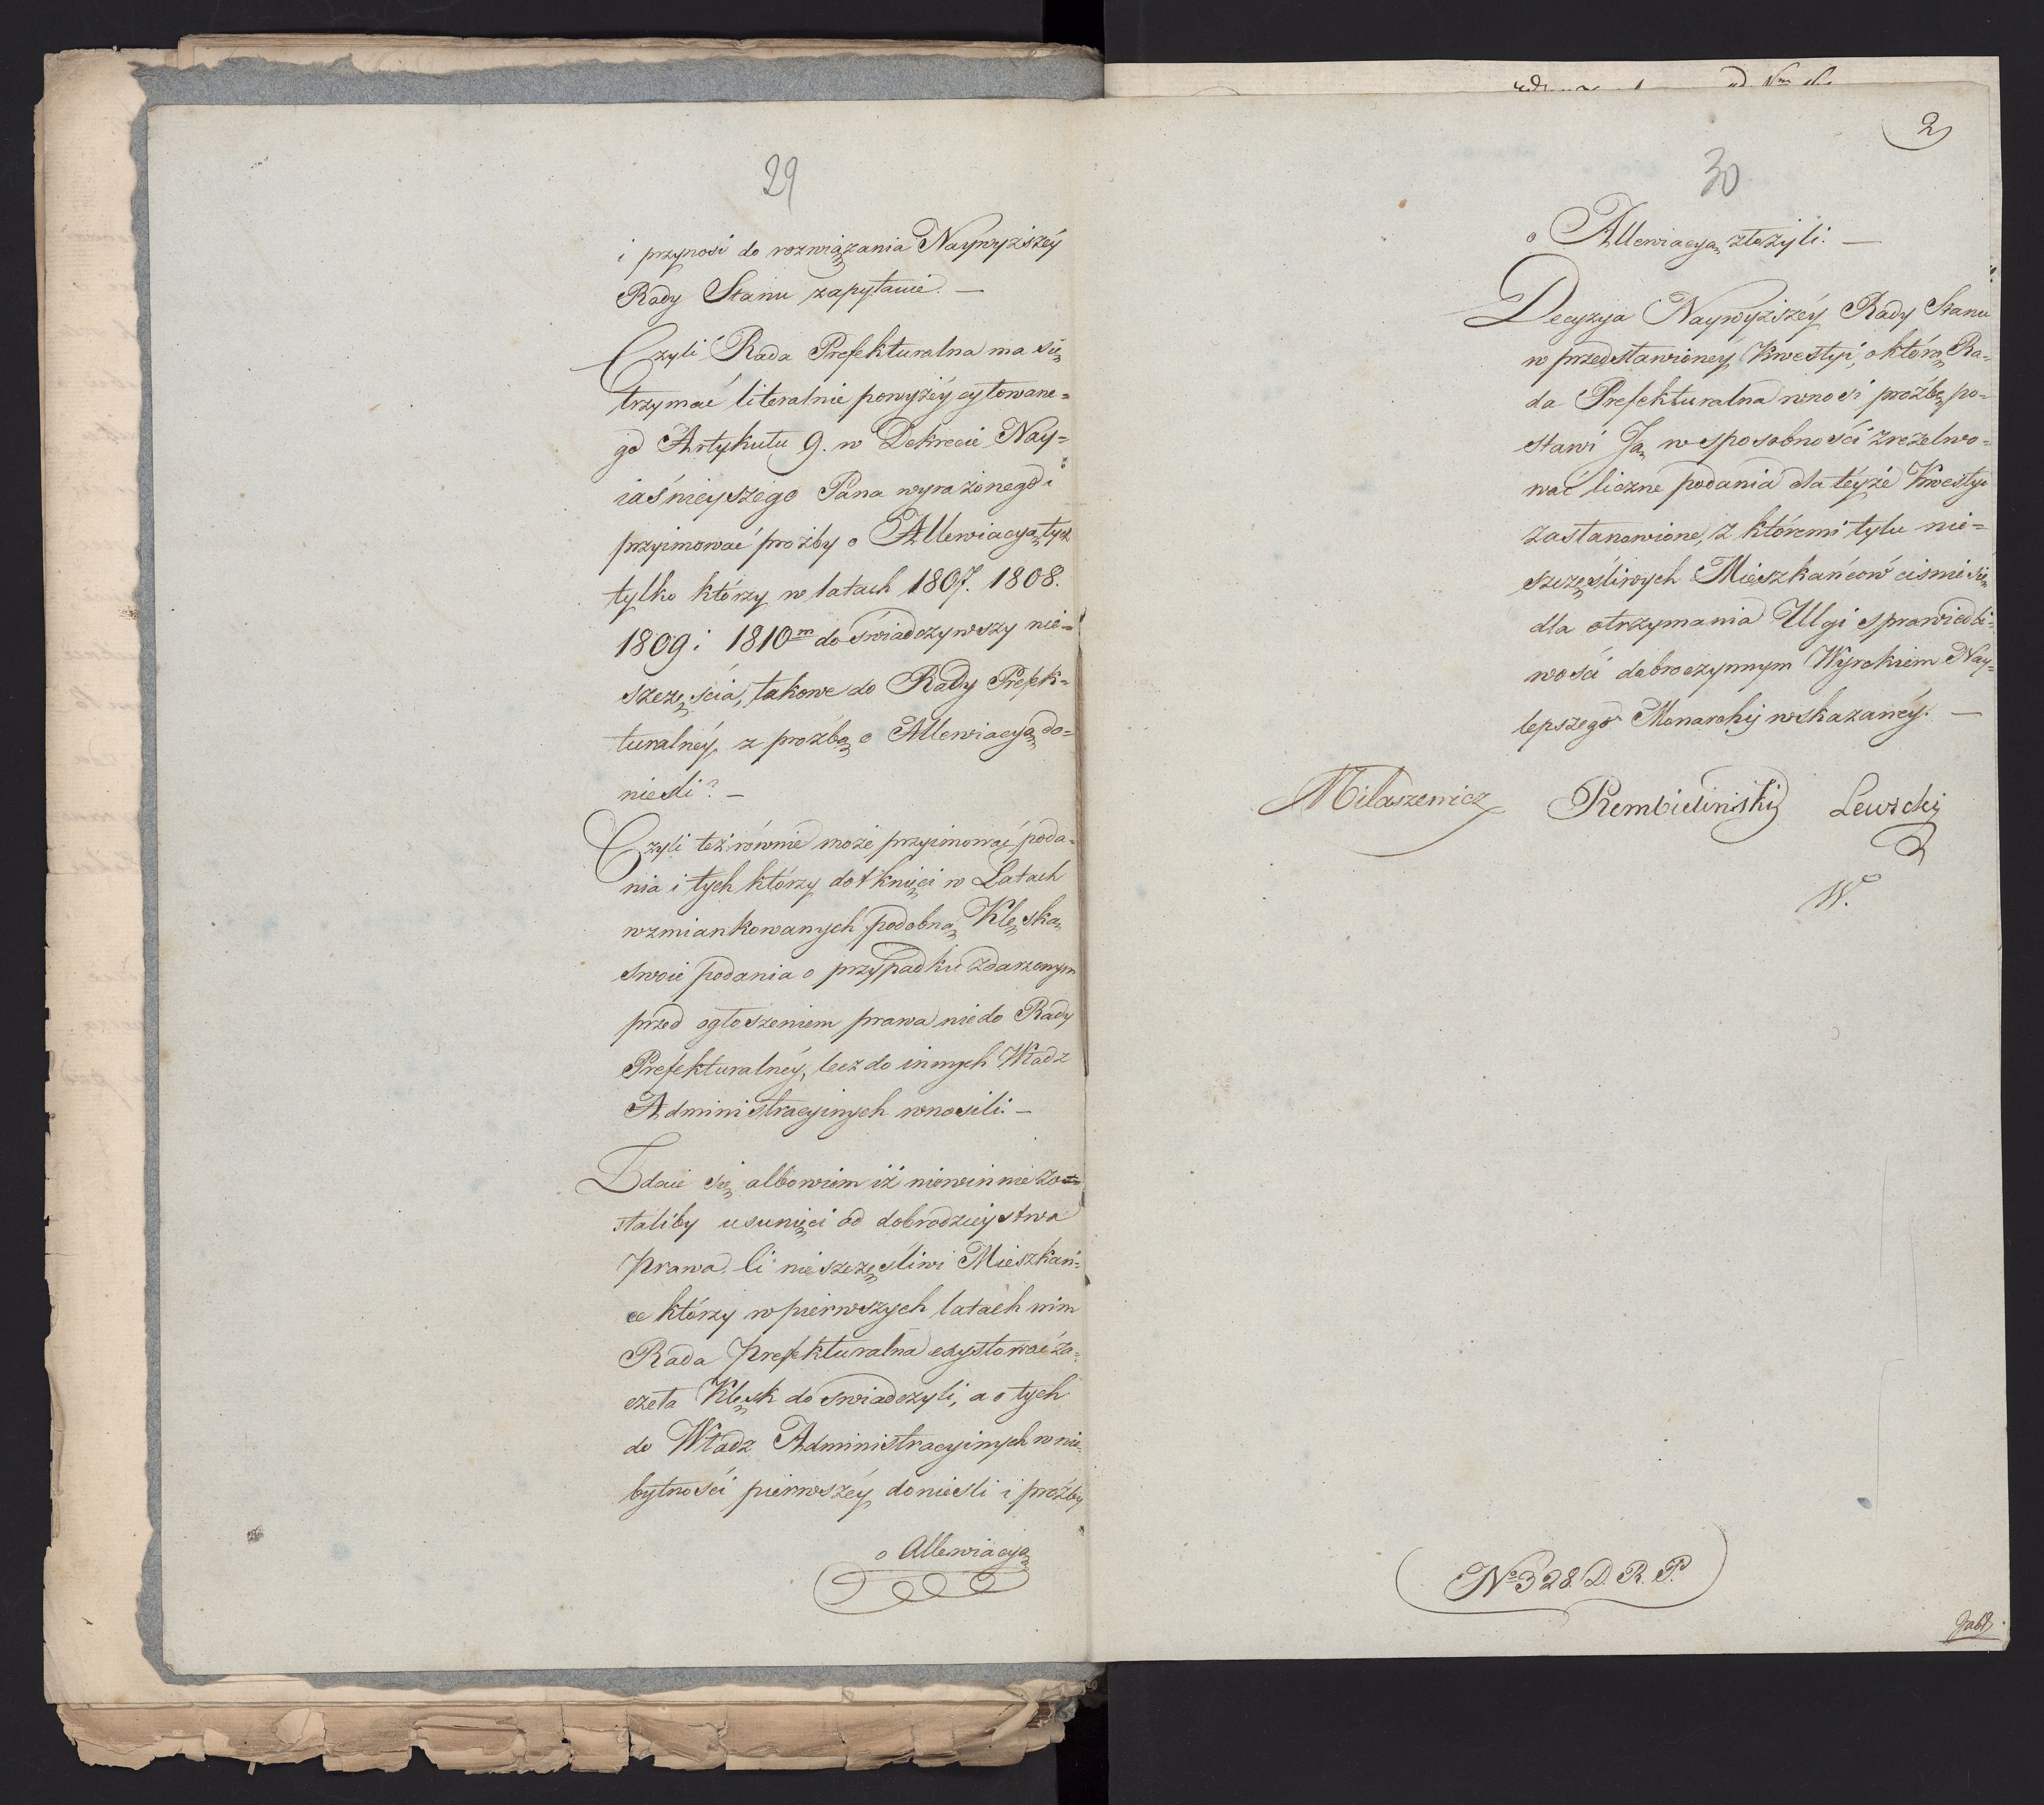 29
i przynosi do rozwiązania Naywyższéy
Rady Stanu zapytanie. —
Czyli Rada Prefekturalna ma się
trzymać literalnie powyżéy cytowane=
go Artykułu 9. w Dekrecie Nay=
iaśnieyszego Pana wyrażonego i
przyimować prozby o Allewiacyą tych
tylko którzy w latach 1807. 1808.
1809 i 1810m doświadczywszy nie=
szczęścia, takowe do Rady Prefek=
turalnéy z prozbą o Allewiacyą do=
niesli? —
Czyli też równie może przyimować poda=
nia i tych którzy dotknięci w Latach
wzmiankowanych podobną Klęską
swoie podania o przypadku zdarzonym
przed ogłoszeniem prawa nie do Rady
Prefekturalnéy, lecz do innych Władz
Administracyinych wnosili. —
Zdaie się albowiem iż niewinnie zo=
staliby usunięci od dobrodzieystwa
Prawa ci nieszczęśliwi Mieszkań=
ce którzy w pierwszych latach nim
Rada Prefekturalna exystować za=
częła Klęsk doswiadczyli, a o tych
do Władz Administracyinych w nie=
bytności pierwszéy doniesli i prożby
o Allewiacyą
2
30
o Allewiacyą złożyli. —
Decyzya Naywyższéy Rady Stanu
w przedstawionéy Kwestyi, o którą Ra=
da Prefekturalna wnosi proźbę po=
stawi Ją w sposobności zrezolwo=
wać liczne podania dla téyże Kwestyi
zastanowione, z któremi tylu nie=
szczęśliwych Mieszkańców ciśnie się
dla otrzymania Ulgi sprawiedli=
wości dobroczynnym Wyrokiem Nay=
lepszego Monarchy wskazanéy. —
Milaszewicz Rembieliński Lewscki
W.
No 328. D. R. P.